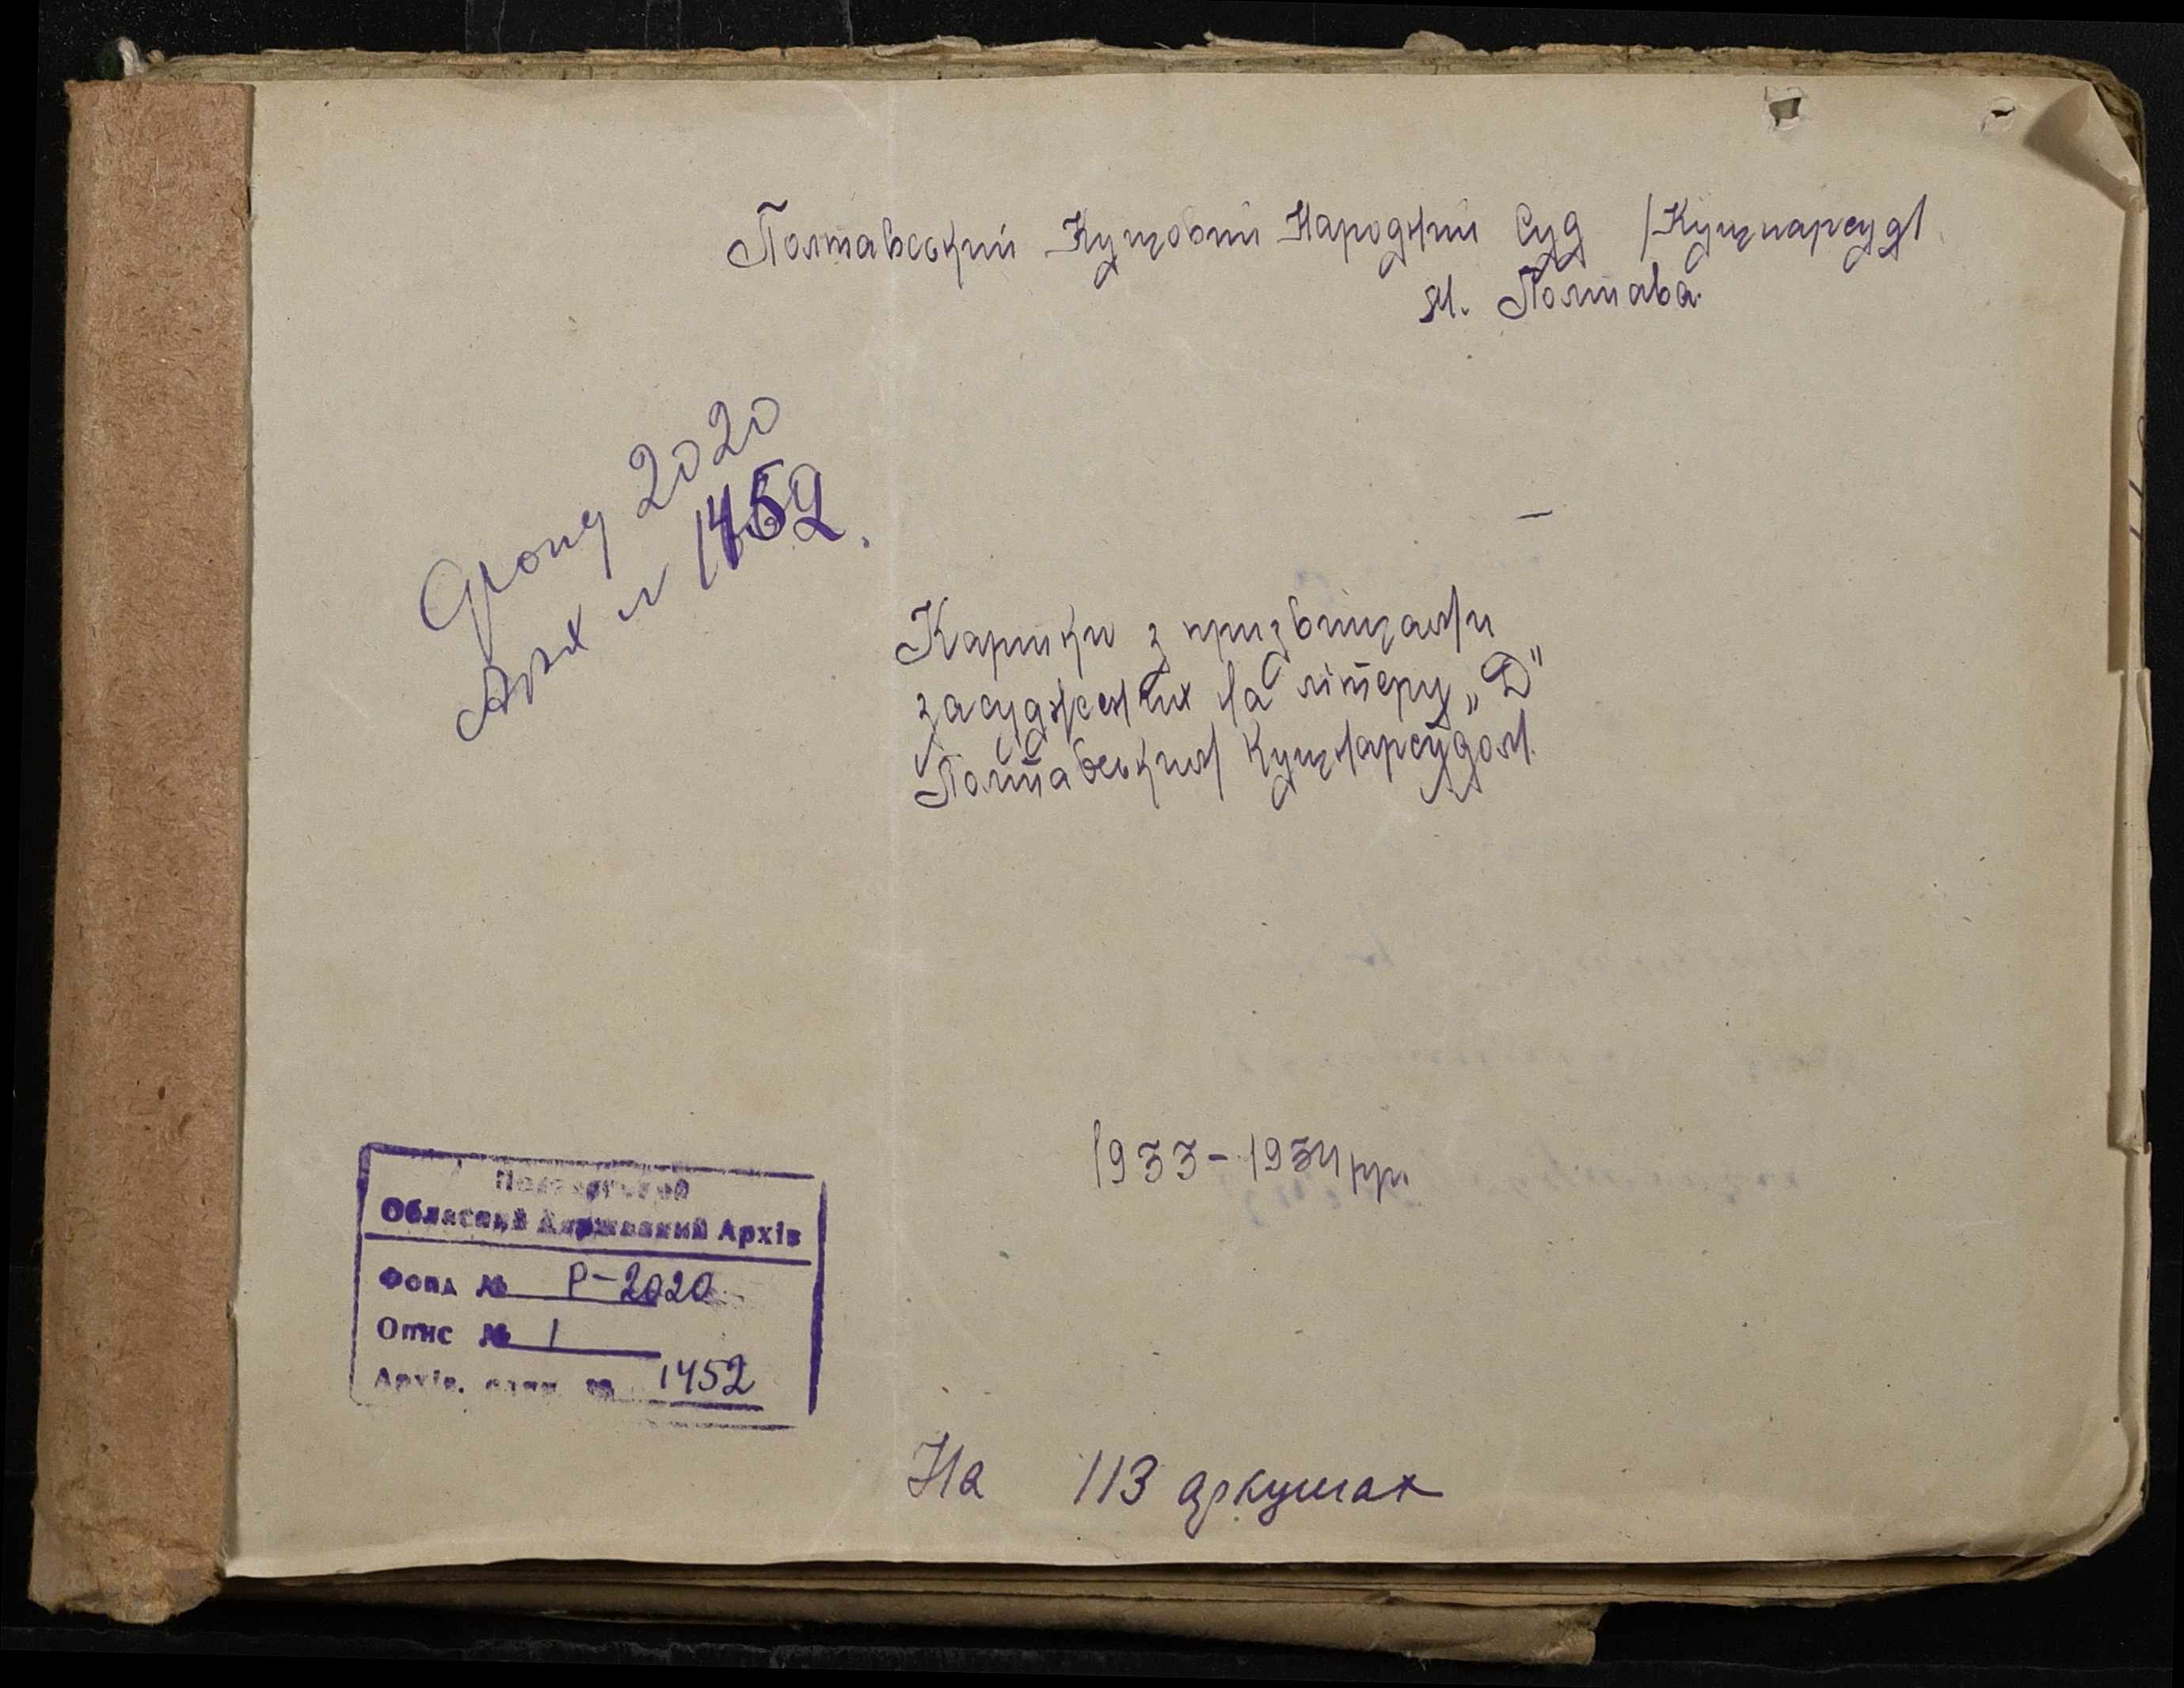 Полтавський Кущовий Народний Суд /Кущнарсуд/
м. Полтава.
Фонд 2020
Арх № 1452.
Картки з призвищами
засуджених на літеру „Д"
Полтавським Кущнарсудом.
1933-1934 рр.
Полтавський
Обласний Державний Архів
Фонд № Р-2020
Опис № 1
Архів. один. № 1452
На 113 аркушах